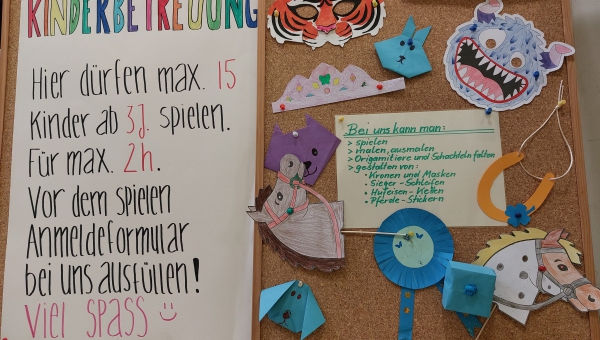 KINDERBETREUUNG
Hier dürfen max. 15
Kinder ab 3J. spielen.
Für max. 2h.
Vor dem spielen
Anmeldeformular
bei uns ausfüllen!
Viel SPASS
Bei uns kann man:
> spielen
> malen, ausmalen
> Origamitiere und Schachteln falten
> gestalten von:
• Kronen und Masken
• Sieger-Schleifen
• Hufeisen-Ketten
• Pferde-Stickern